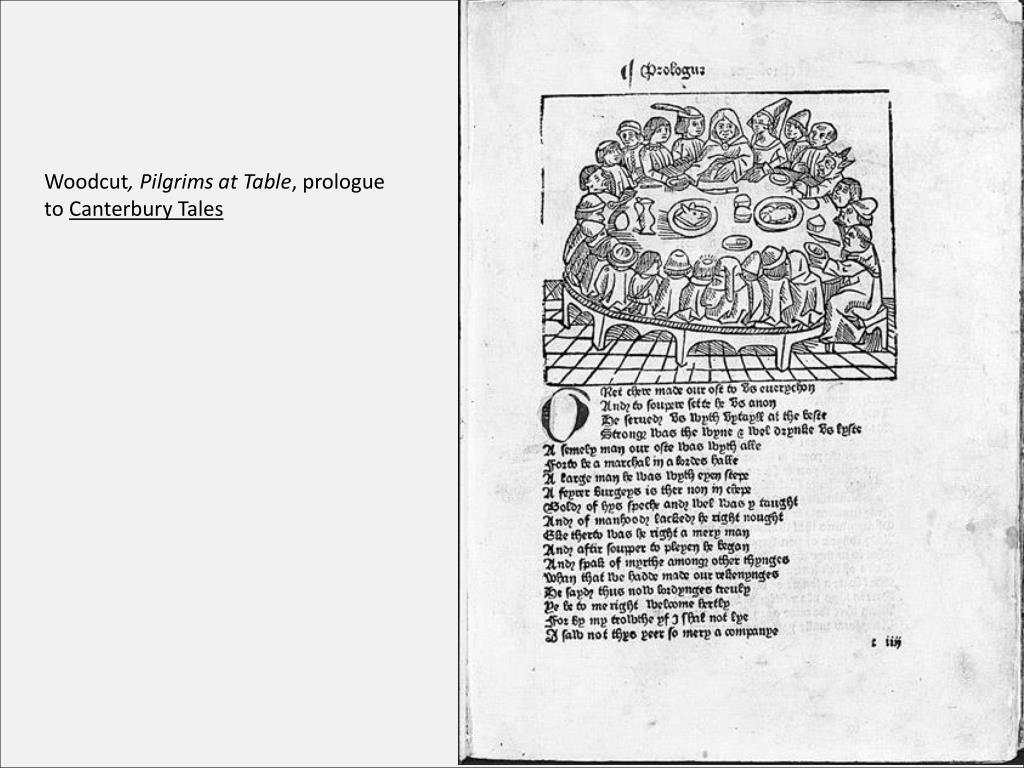 Woodcut, Pilgrims at Table, prologue
to Canterbury Tales
¶ Prologus
Gret chere made our ost to vs euerychon
And to soupere sette he vs anon
He serued vs wyth vytayll at the beste
Strong was the wyne & wel drynke vs lyste
A semely man our oste was wyth alle
Forto be a marchal in a lordes halle
A large man he was wyth eyen stepe
A feyrer burgeys is ther non in chepe
Bold of hys speche and wel was y taught
And of manhood lacked he right nought
Eke therto was he right a mery man
And aftir soupper to pleyen he began
And spak of myrthe among other thynges
Whan that we hadde made our rekenynges
He sayd thus now lordynges treuly
Ye be to me right welcome hertly
For by my trowthe yf I shal not lye
I saw not thys yeer so mery a companye
c iiij